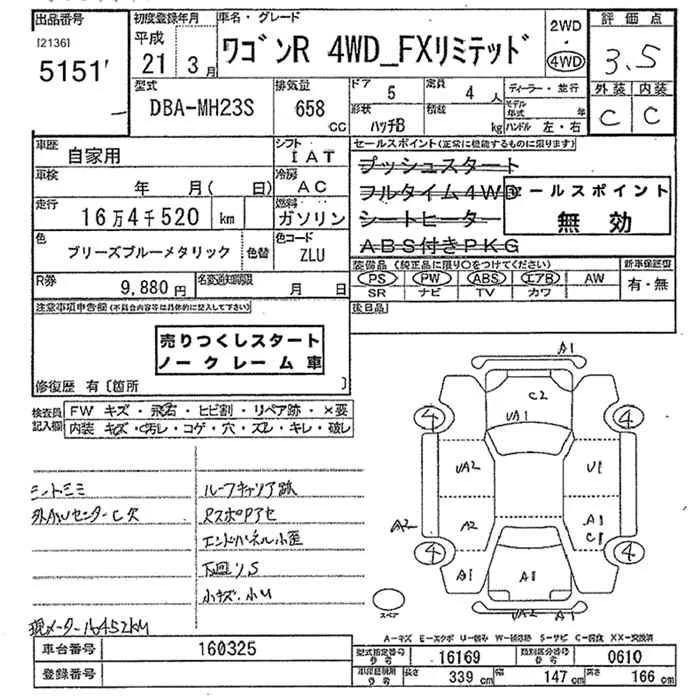 出品番号
[2136]
5151'
初度登録年月
平成
21年
3月
車名・グレード
ワゴンR 4WD_FXリミテッド
2WD
・
4WD
評価点
3.5
外装 内装
C C
型式
DBA-MH23S
排気量
658
CC
ドア 5
定員 4人
形状 ハッチB
積載 kg
ディーラー・並行
モデル年式 年
ハンドル 左・右
車歴
自家用
シフト
IAT
車検
年 月( 日)
冷房
AC
走行
16万4千520 km
燃料
ガソリン
色
ブリーズブルーメタリック
色替
色コード
ZLU
R券
9,880円
名変通知期限
月 日
セールスポイント(正常に機能するものに限ります)
プッシュスタート
フルタイム4WD
シートヒーター
ABS付きPKG
セールスポイント
無効
装備品(純正品に限り○をつけてください)
PS PW ABS エアB AW
SR ナビ TV カワ
新車保証書
有・無
後日品
注意事項申告欄(不具合内容等は具体的に記入して下さい)
売りつくしスタート
ノークレーム車
修復歴 有〔箇所 〕
検査員記入欄
FW キズ・飛石・ヒビ割・リペア跡・×要
内装 キズ・汚レ・コゲ・穴・ズレ・キレ・破レ
ルーフキャリア跡
外AWセンターC欠
RスポPアセ
エンドパネル小歪
下回りS
小キズ・小U
現メーター16452KM
A1
C2
UA1
4
4
UA2
U1
A2
A2
A1
C1
4
4
A1
A1
UA2
A1
スペア
A-キズ E-エクボ U-凹み W-補修跡 S-サビ C-腐食 XX-交換済
車台番号
160325
登録番号
型式指定番号
16169
類別区分番号
0610
長さ 339 cm
幅 147 cm
高さ 166 cm